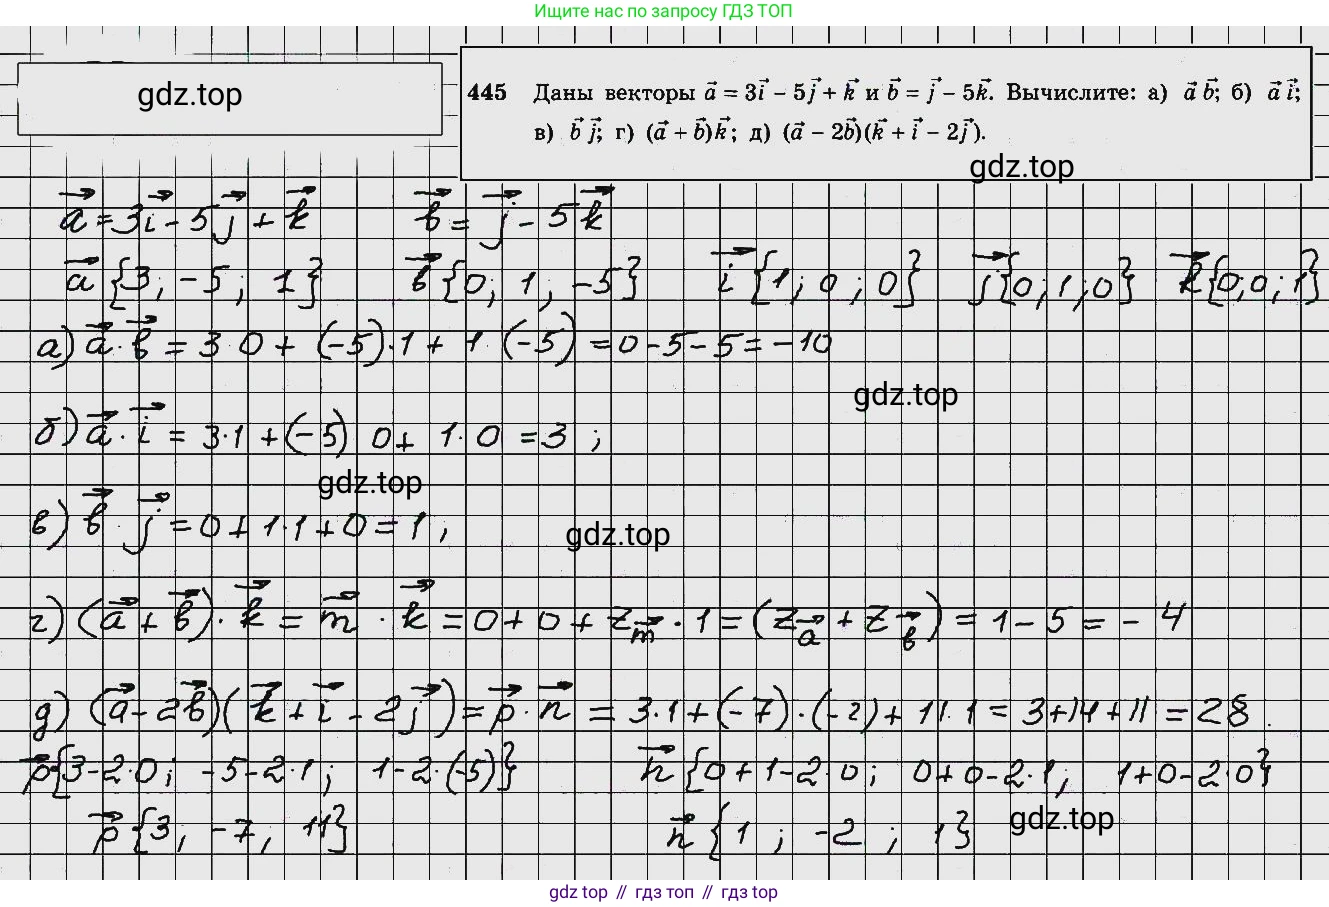 Ищите нас по запросу ГДЗ ТОП
gdz.top
445 Даны векторы a⃗ = 3i⃗ − 5j⃗ + k⃗ и b⃗ = j⃗ − 5k⃗. Вычислите: а) a⃗ b⃗; б) a⃗ i⃗;
в) b⃗ j⃗; г) (a⃗ + b⃗)k⃗; д) (a⃗ − 2b⃗)(k⃗ + i⃗ − 2j⃗).
gdz.top
a⃗ = 3i⃗ − 5j⃗ + k⃗ b⃗ = j⃗ − 5k⃗
a⃗ {3; −5; 1} b⃗ {0; 1; −5} i⃗ {1; 0; 0} j⃗ {0; 1; 0} k⃗ {0; 0; 1}
а) a⃗ · b⃗ = 3 0 + (−5)·1 + 1·(−5) = 0 − 5 − 5 = −10
gdz.top
б) a⃗ · i⃗ = 3·1 + (−5) 0 + 1·0 = 3 ;
gdz.top
в) b⃗ j⃗ = 0 + 1·1 + 0 = 1 ,
gdz.top
г) (a⃗ + b⃗)· k⃗ = m⃗ · k⃗ = 0 + 0 + z_m⃗ · 1 = (z_a⃗ + z_b⃗) = 1 − 5 = − 4
д) (a⃗ − 2b⃗)(k⃗ + i⃗ − 2j⃗) = p⃗ · n⃗ = 3·1 + (−7)·(−2) + 11·1 = 3 + 14 + 11 = 28.
p⃗ {3 − 2·0; −5 − 2·1; 1 − 2·(−5)} n⃗ {0 + 1 − 2·0; 0 + 0 − 2·1; 1 + 0 − 2·0}
p⃗ {3, −7, 11} n⃗ {1 ; −2 ; 1}
gdz.top
gdz top // гдз топ // gdz top